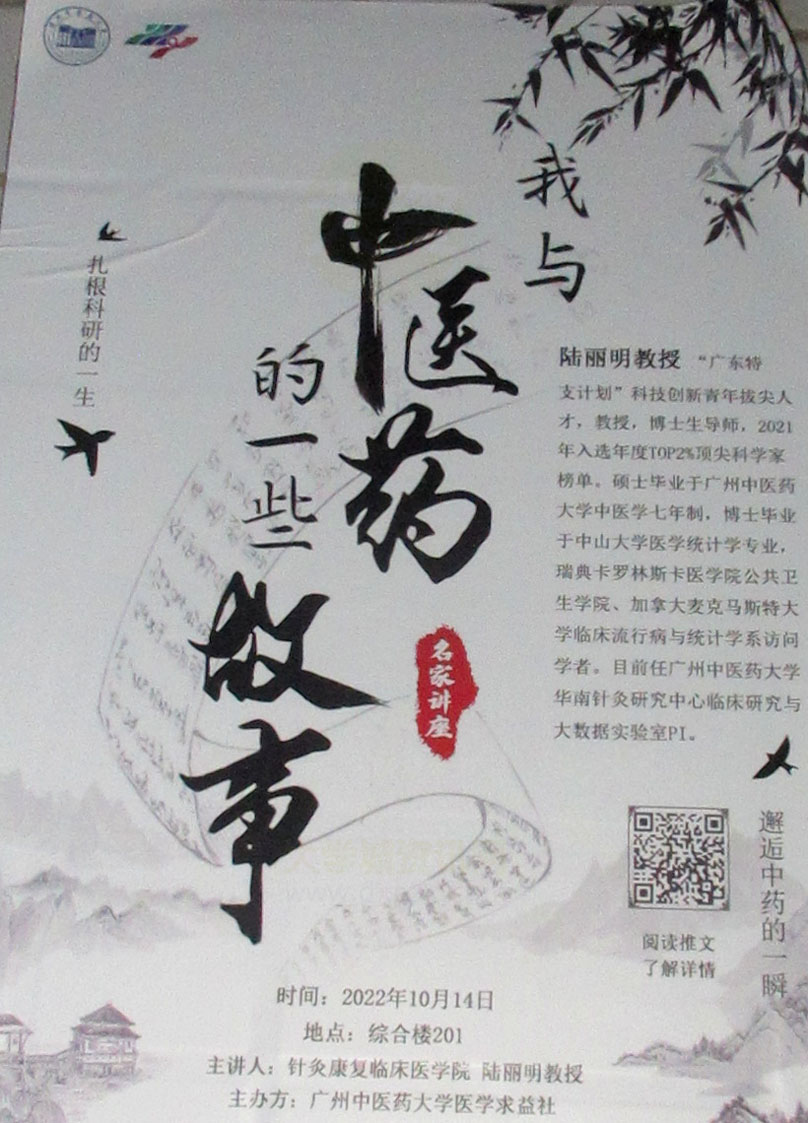 我与
中医药
的一些
故事
名家讲座
扎根科研的一生
陆丽明教授 “广东特
支计划”科技创新青年拔尖人
才，教授，博士生导师，2021
年入选年度TOP2%顶尖科学家
榜单。硕士毕业于广州中医药
大学中医学七年制，博士毕业
于中山大学医学统计学专业，
瑞典卡罗林斯卡医学院公共卫
生学院、加拿大麦克马斯特大
学临床流行病与统计学系访问
学者。目前任广州中医药大学
华南针灸研究中心临床研究与
大数据实验室PI。
邂逅中药的一瞬
阅读推文
了解详情
时间：2022年10月14日
地点：综合楼201
主讲人：针灸康复临床医学院 陆丽明教授
主办方：广州中医药大学医学求益社